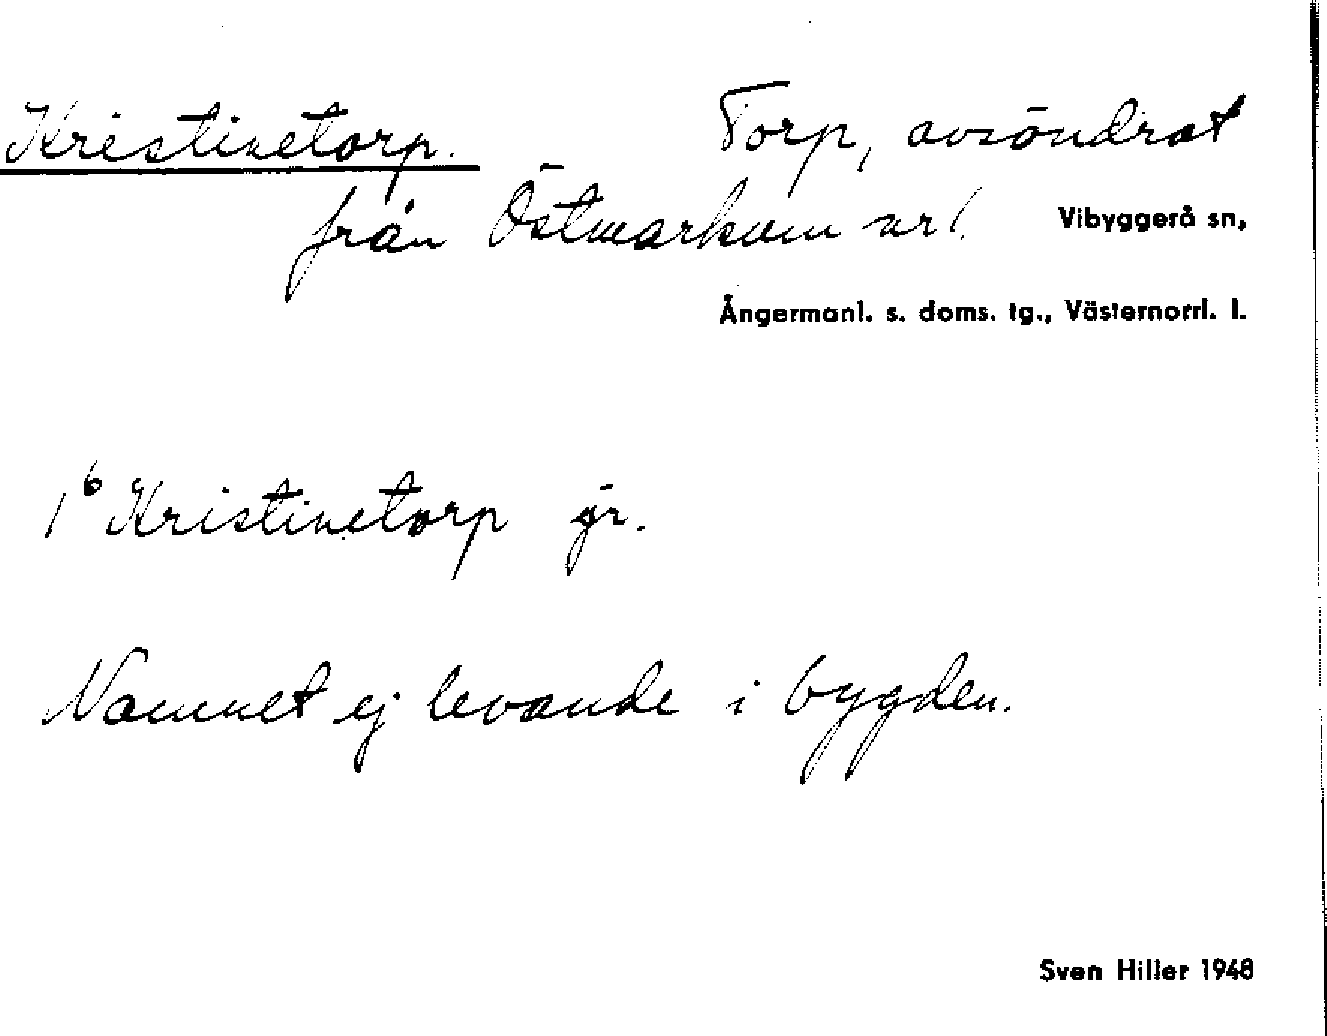 Kristinetorp. Torp, avsöndrat
från Östmarkum nr 1. Vibyggerå sn,
Ångermanl. s. doms. tg., Västernorrl. l.
1⁶ Kristinetorp jr.
Namnet ej levande i bygden.
Sven Hiller 1948